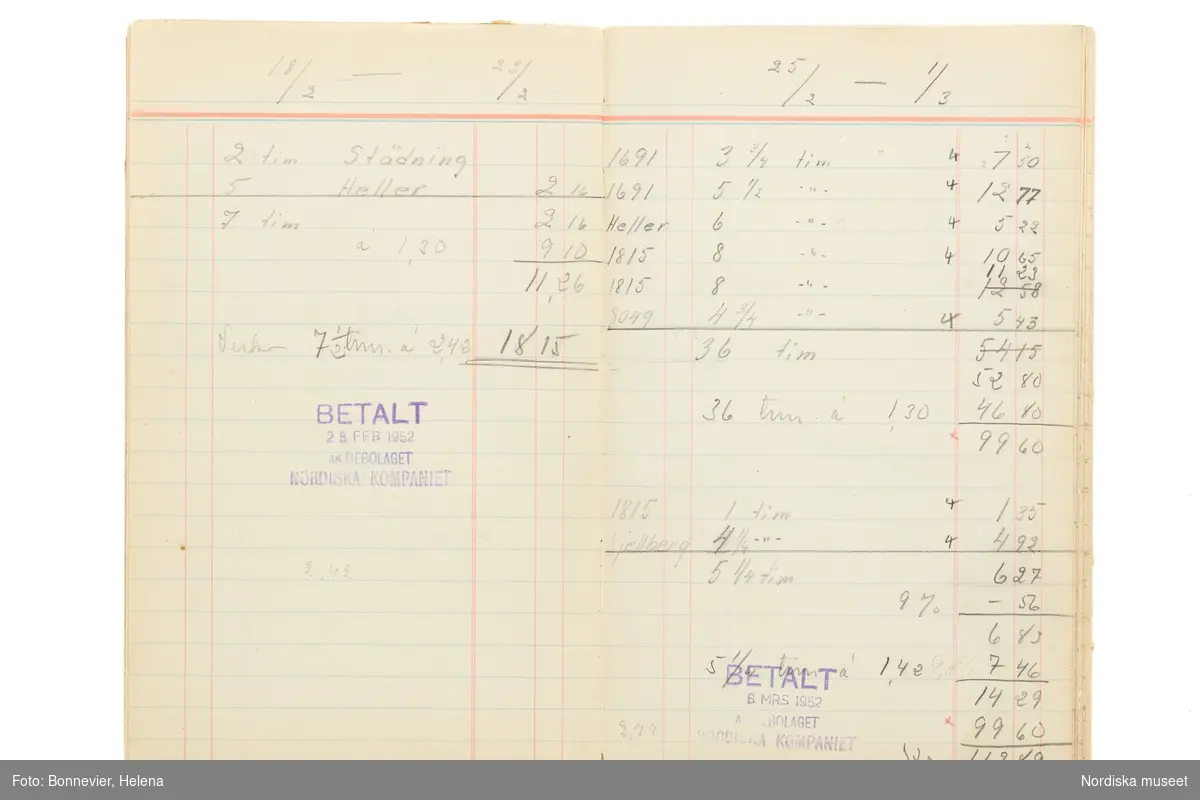 18/2 — 23/2
2 tim Städning
5 Heller 2 16
7 tim 2 16
à 1,30 9 10
11,26
7 1/2 tim. à 2,42 18 15
BETALT
28. FEB 1952
AKTIEBOLAGET
NORDISKA KOMPANIET
2,42
25/2 — 1/3
1691 3 3/4 tim 4 7 50
1691 5 1/2 -"- 4 12 77
Heller 6 -"- 4 5 22
1815 8 -"- 4 10 65
11 23
1815 8 -"- 12 58
8049 4 3/4 -"- 4 5 43
36 tim 54 15
52 80
36 tim. à 1,30 46 80
x 99 60
1815 1 tim 4 1 35
Kjellberg 4 1/4 -"- 4 4 92
5 1/4 tim 6 27
9 % – 56
6 83
5 1/4 tim. à 1,42 7 46
BETALT
14 29
6. MRS 1952
AKTIEBOLAGET
x 99 60
NORDISKA KOMPANIET
Foto: Bonnevier, Helena
Nordiska museet